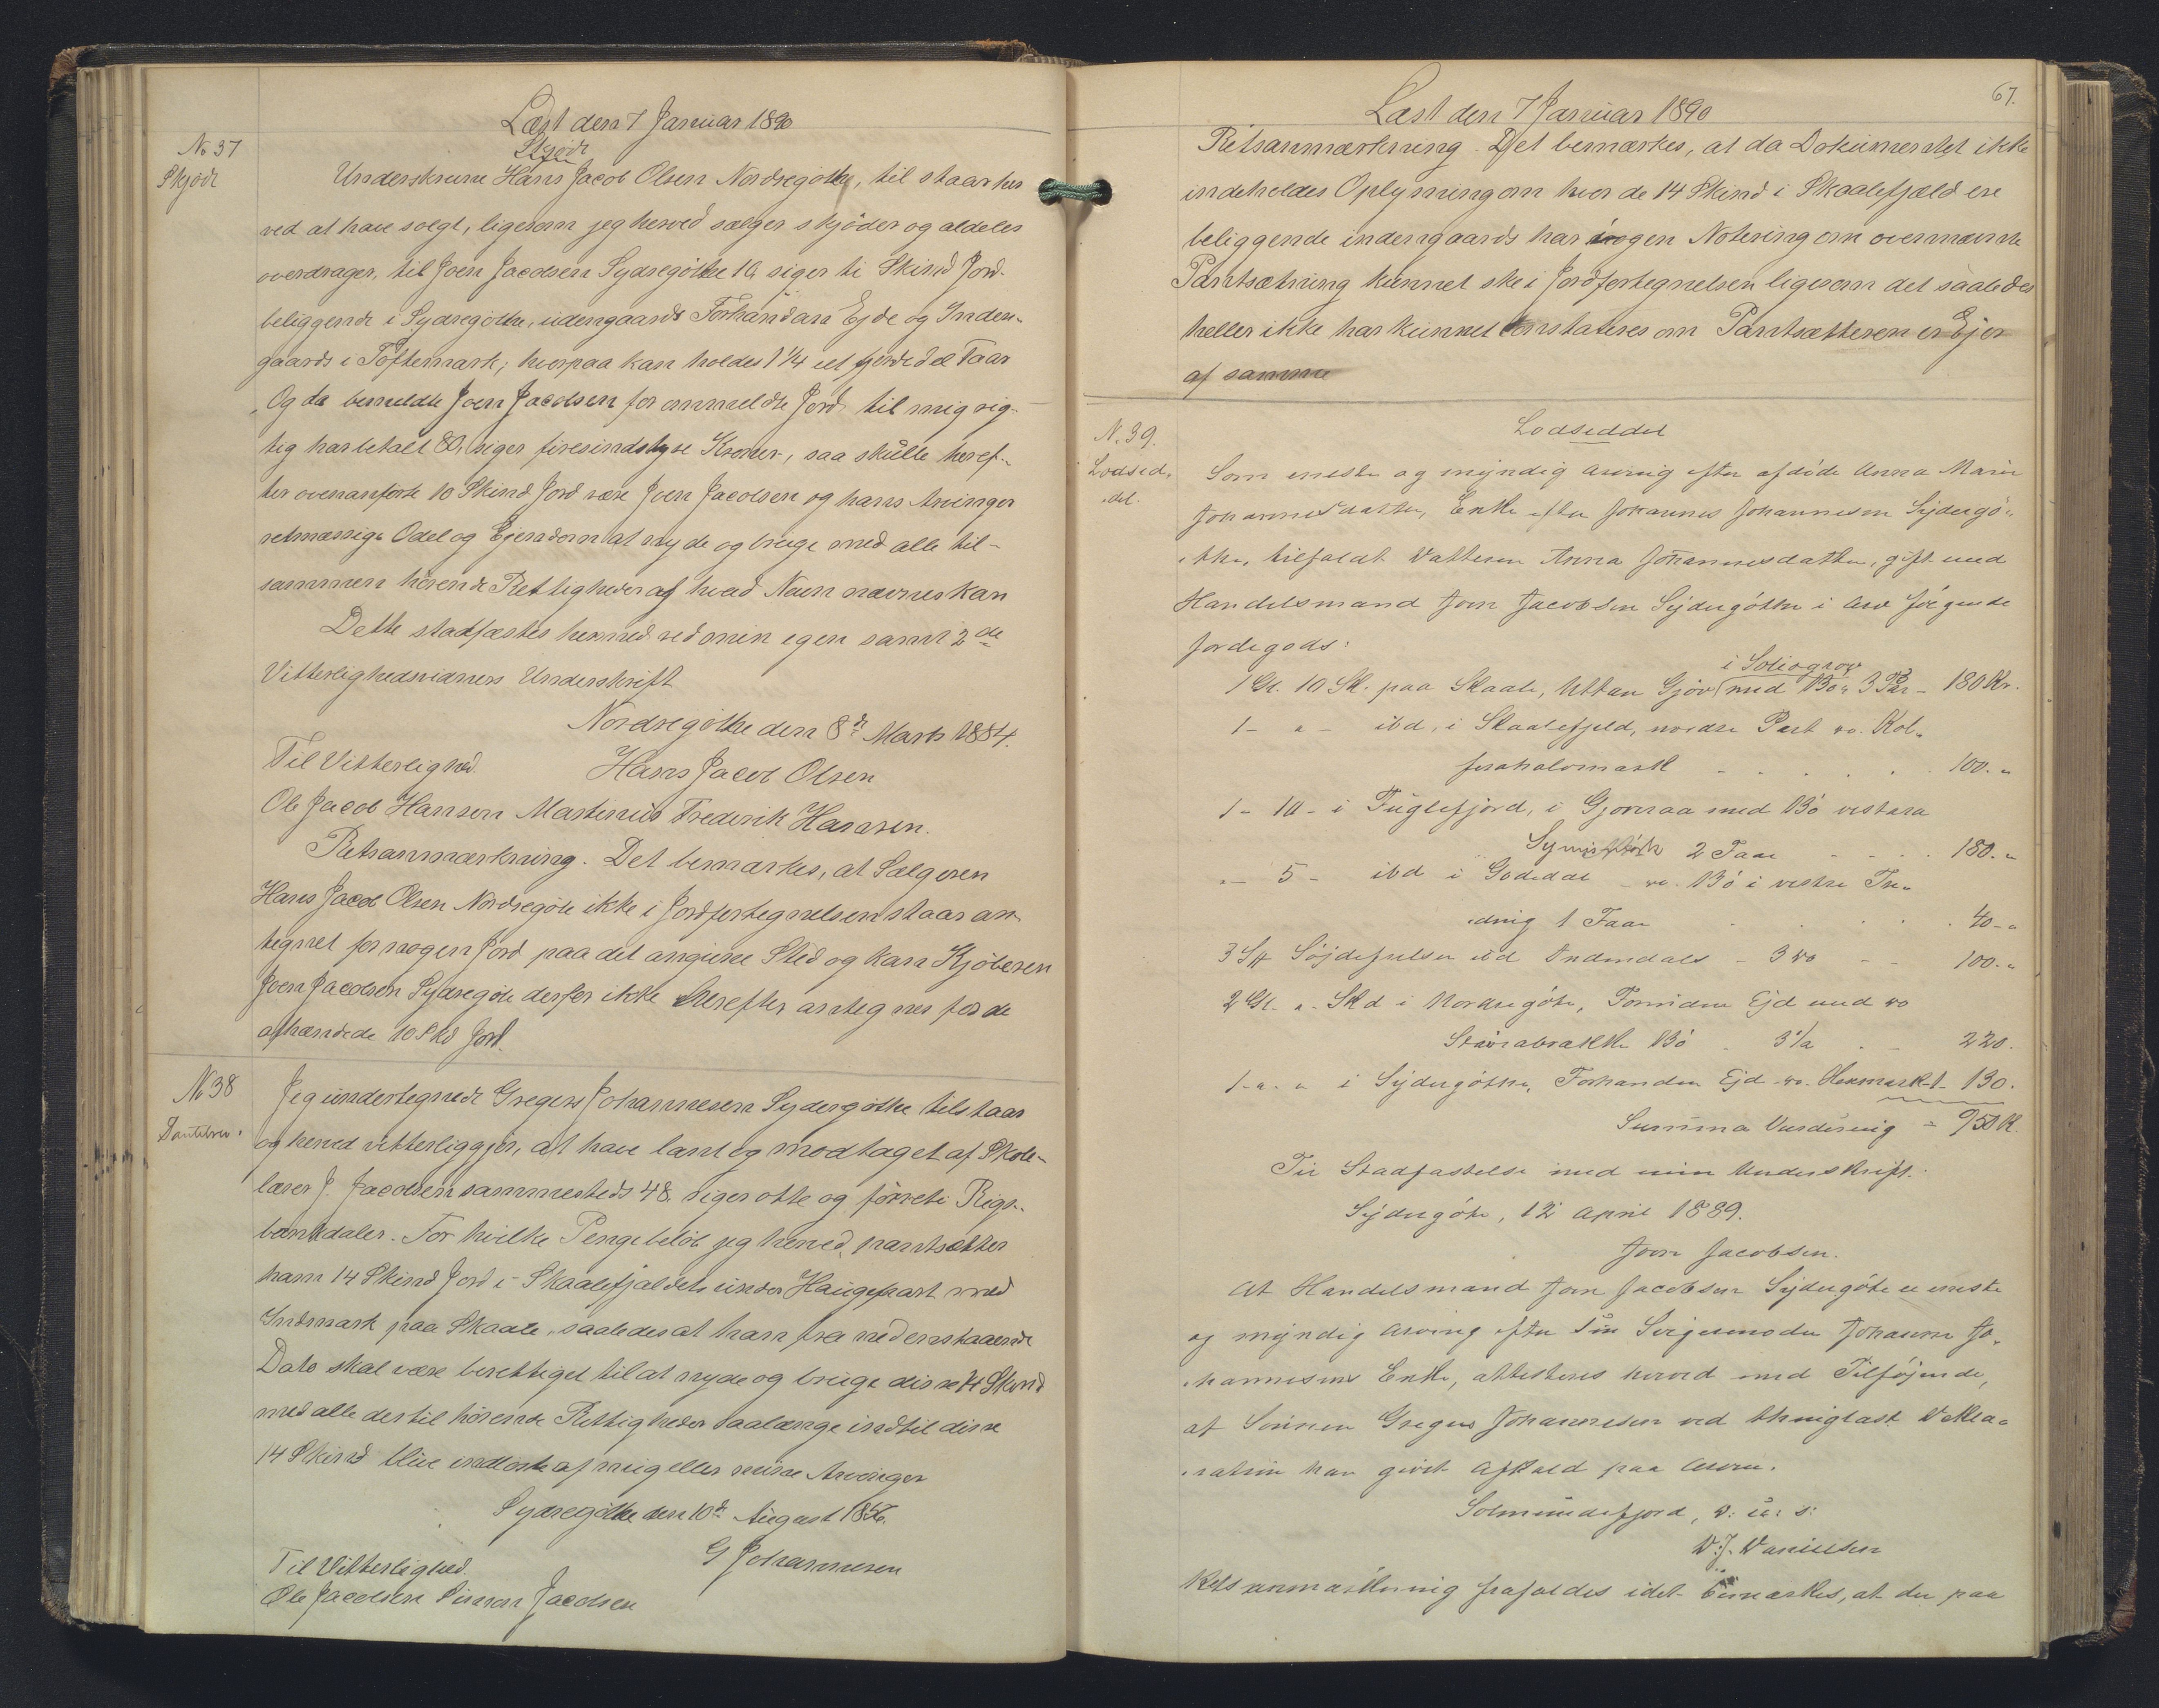 Læst den 7 Januar 1890
No 37
Skjøde
Skjøde
Underskrevne Hans Jacob Olsen Nordregøthe, til staar her
ved at have solgt, ligesom jeg herved sælger skjöder og aldeles
overdrager, til Joen Jacobsen Sydregöthe 10 siger ti Skind Jord-
beliggende i Sydregöthe, udengaards Forhandara Ejde og Inden-
gaards i Töftemark; hvorpaa kan holdes 1 1/4 et fjerdedel Faar
Og da bemeldte Joen Jacobsen for ommeldte Jord til mig rig-
tig har betalt 80, siger firesindstyve Kroner, saa skulle heref-
ter ovenanførte 10 Skind Jord være Joen Jacobsen og hans Arvinger
retmæssige Odel og Ejendom at nyde og bruge med alle til-
sammen hörende Rettigheder af hvad Navn nævnes kan
Dette stadfæstes hermed ved min egen samt 2de
Vitterlighedsvidners Underskrift
Nordregöthe den 8de Marts 1884.
Til Vitterlighed. Hans Jacob Olsen
Ole Jacob Hansen Martinus Frederik Hansen.
Retsanmærkning. Det bemærkes, at Sælgeren
Hans Jacob Olsen Nordregöte ikke i Jordfortegnelsen staar an-
tegnet for nogen Jord paa det angivne Sted og kan Kjöberen
Joen Jacobsen Sydregöte derfor ikke herefter antegnes for de
afhændede 10 Skd Jord.
No 38
Pantebrev.
Jeg undertegnede Gregers Johannesen Sydergöthe tilstaar
og herved vitterliggjør, at have laant og modtaget af Skole-
lærer J. Jacobsen sammesteds 48. siger otte og förreti Rigs-
bankdaler. For hvilke Pengebeløb jeg herved pantsætter
ham 14 Skind Jord i Skaalefjaldet under Haugepart med
Indmark paa Skaale, saaledes at han fra nedenstaaende
Dato skal være berettiget til at nyde og bruge disse 14 Skind
med alle dertil hörende Rettigheder saalænge indtil disse
14 Skind blive indløste af mig eller mine Arvinger
Sydregöthe den 10de August 1856.
G Johannesen
Til Vitterlighed.
Ole Jacobsen Simon Jacobsen
67.
Læst den 7 Januar 1890
Retsanmærkning. Det bemærkes, at da Dokumentet ikke
indeholdes Oplysning om hvor de 14 Skind i Skaalefjæld ere
beliggende indengaards har ingen Notering om ovennævnte
Pantsætning kunnet ske i Jordfortegnelsen ligesom det saaledes
heller ikke har kunnet konstateres om Pantsætteren er Ejer
af samme
N. 39.
Lodsed-
del.
Lodseddel
Som eneste og myndig arving efter afdöde Anna Marie
Johannesdatter, Enke efter Johannes Johannesen Sydergö-
the, tilfaldt Datteren Anna Johannesdatter, gift med
Handelsmand Joen Jacobsen Sydergöthe i Arv følgende
Jordegods:
i
1 Gl. 10 Sk. paa Skaale, Uttan Gjöv med Bö 3 Får - 180 Kr.
1 - " - ibd, i Skaalefjeld, nordre Part do.
100. "
1 - 10 - i Fuglefjord, i Gjoveraa med Bö vestara
2 Faar 180. "
" - 5 - ibd i Godedal do. Bö i vestre
1 Faar 40 - "
3 Sk Söjdefuelser ibd Indendals - 3 do 100. "
2 Gl. " Skd i Nordregöte, Ejd med do
Bö 3 1/2 220.
1 - " " i Sydergöthe, Forhanden Ejd do. 1 - 130.
Summa Vurdering = 950 K.
Til Stadfæstelse med min Underskrift.
Sydergöte, 12 April 1889.
Joen Jacobsen.
At Handelsmand Joen Jacobsen Sydergöte er eneste
og myndig Arving efter sin Svigermoder Johanne Jo-
hannesens Enke, attesteres herved med Tilföjende,
at Sönnen Gregers Johannesen ved thinglæst Dekla-
ration har givet Afkald paa Arven.
Solmundefjord, d: u: s:
D. J. Danielsen
Retsanmærkning frafaldes idet bemærkes, at der paa